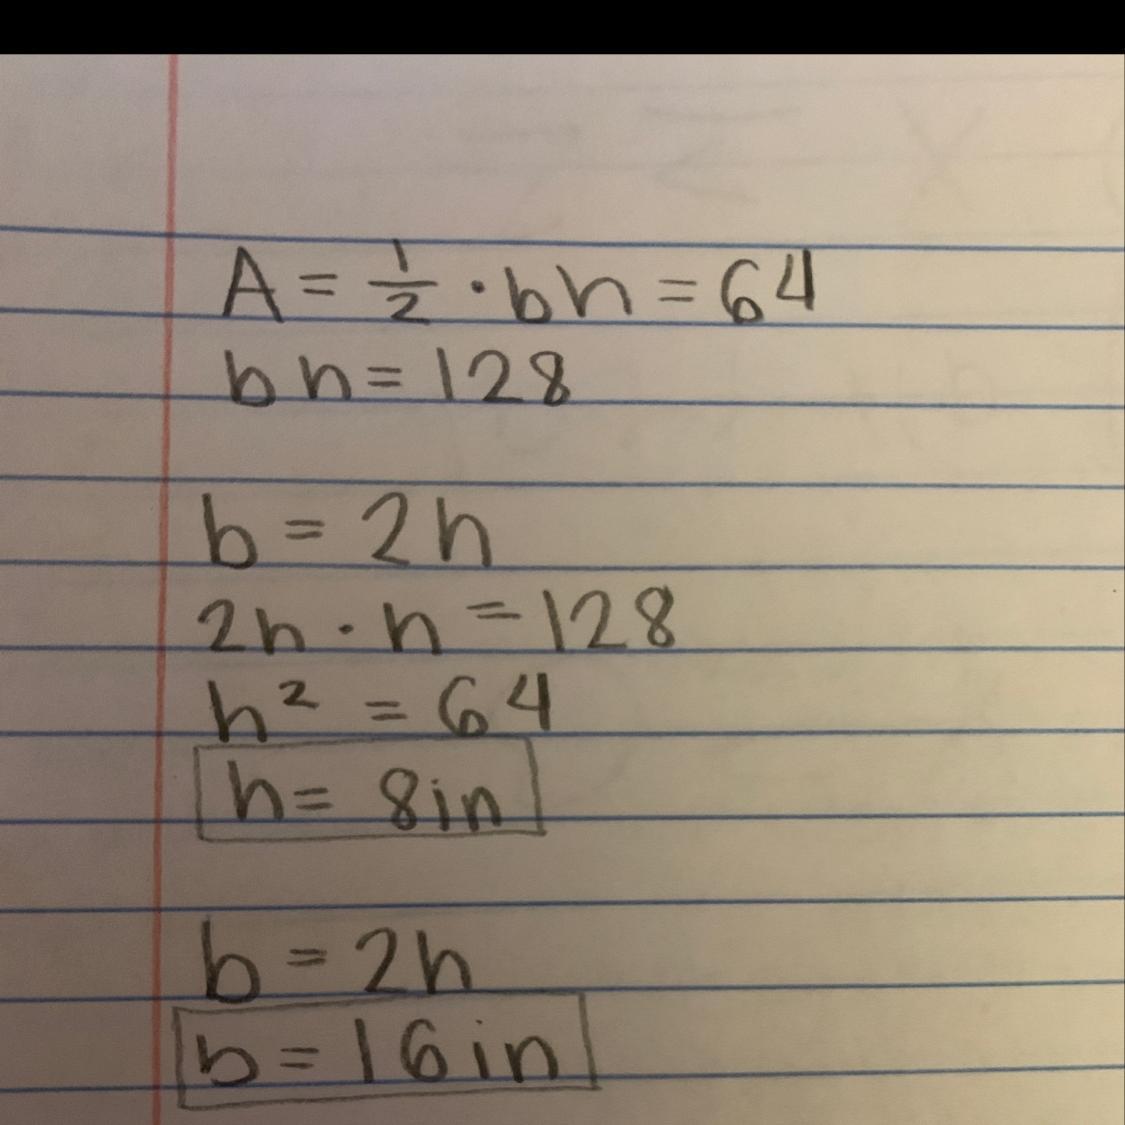 A = 1/2 · bh = 64
bh = 128
b = 2h
2h · h = 128
h² = 64
h = 8in
b = 2h
b = 16in